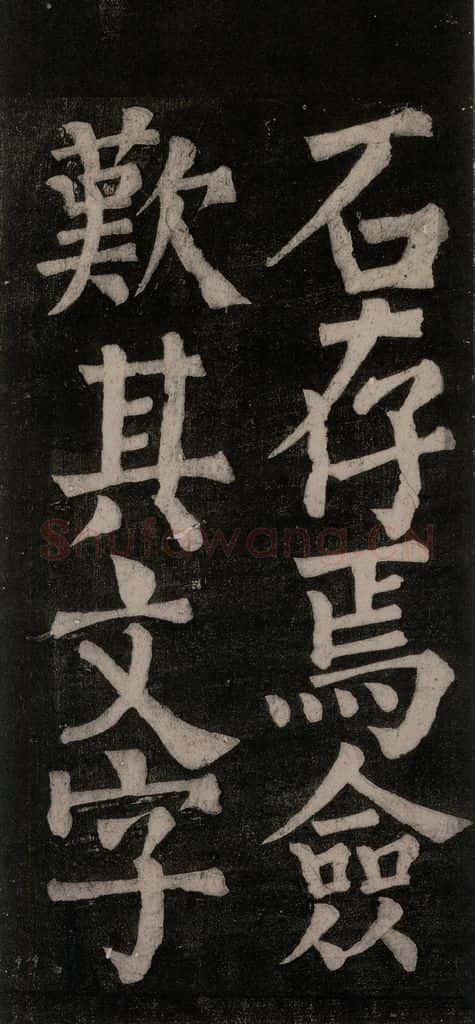 石存焉僉
歎其文字
Shufawang.CN